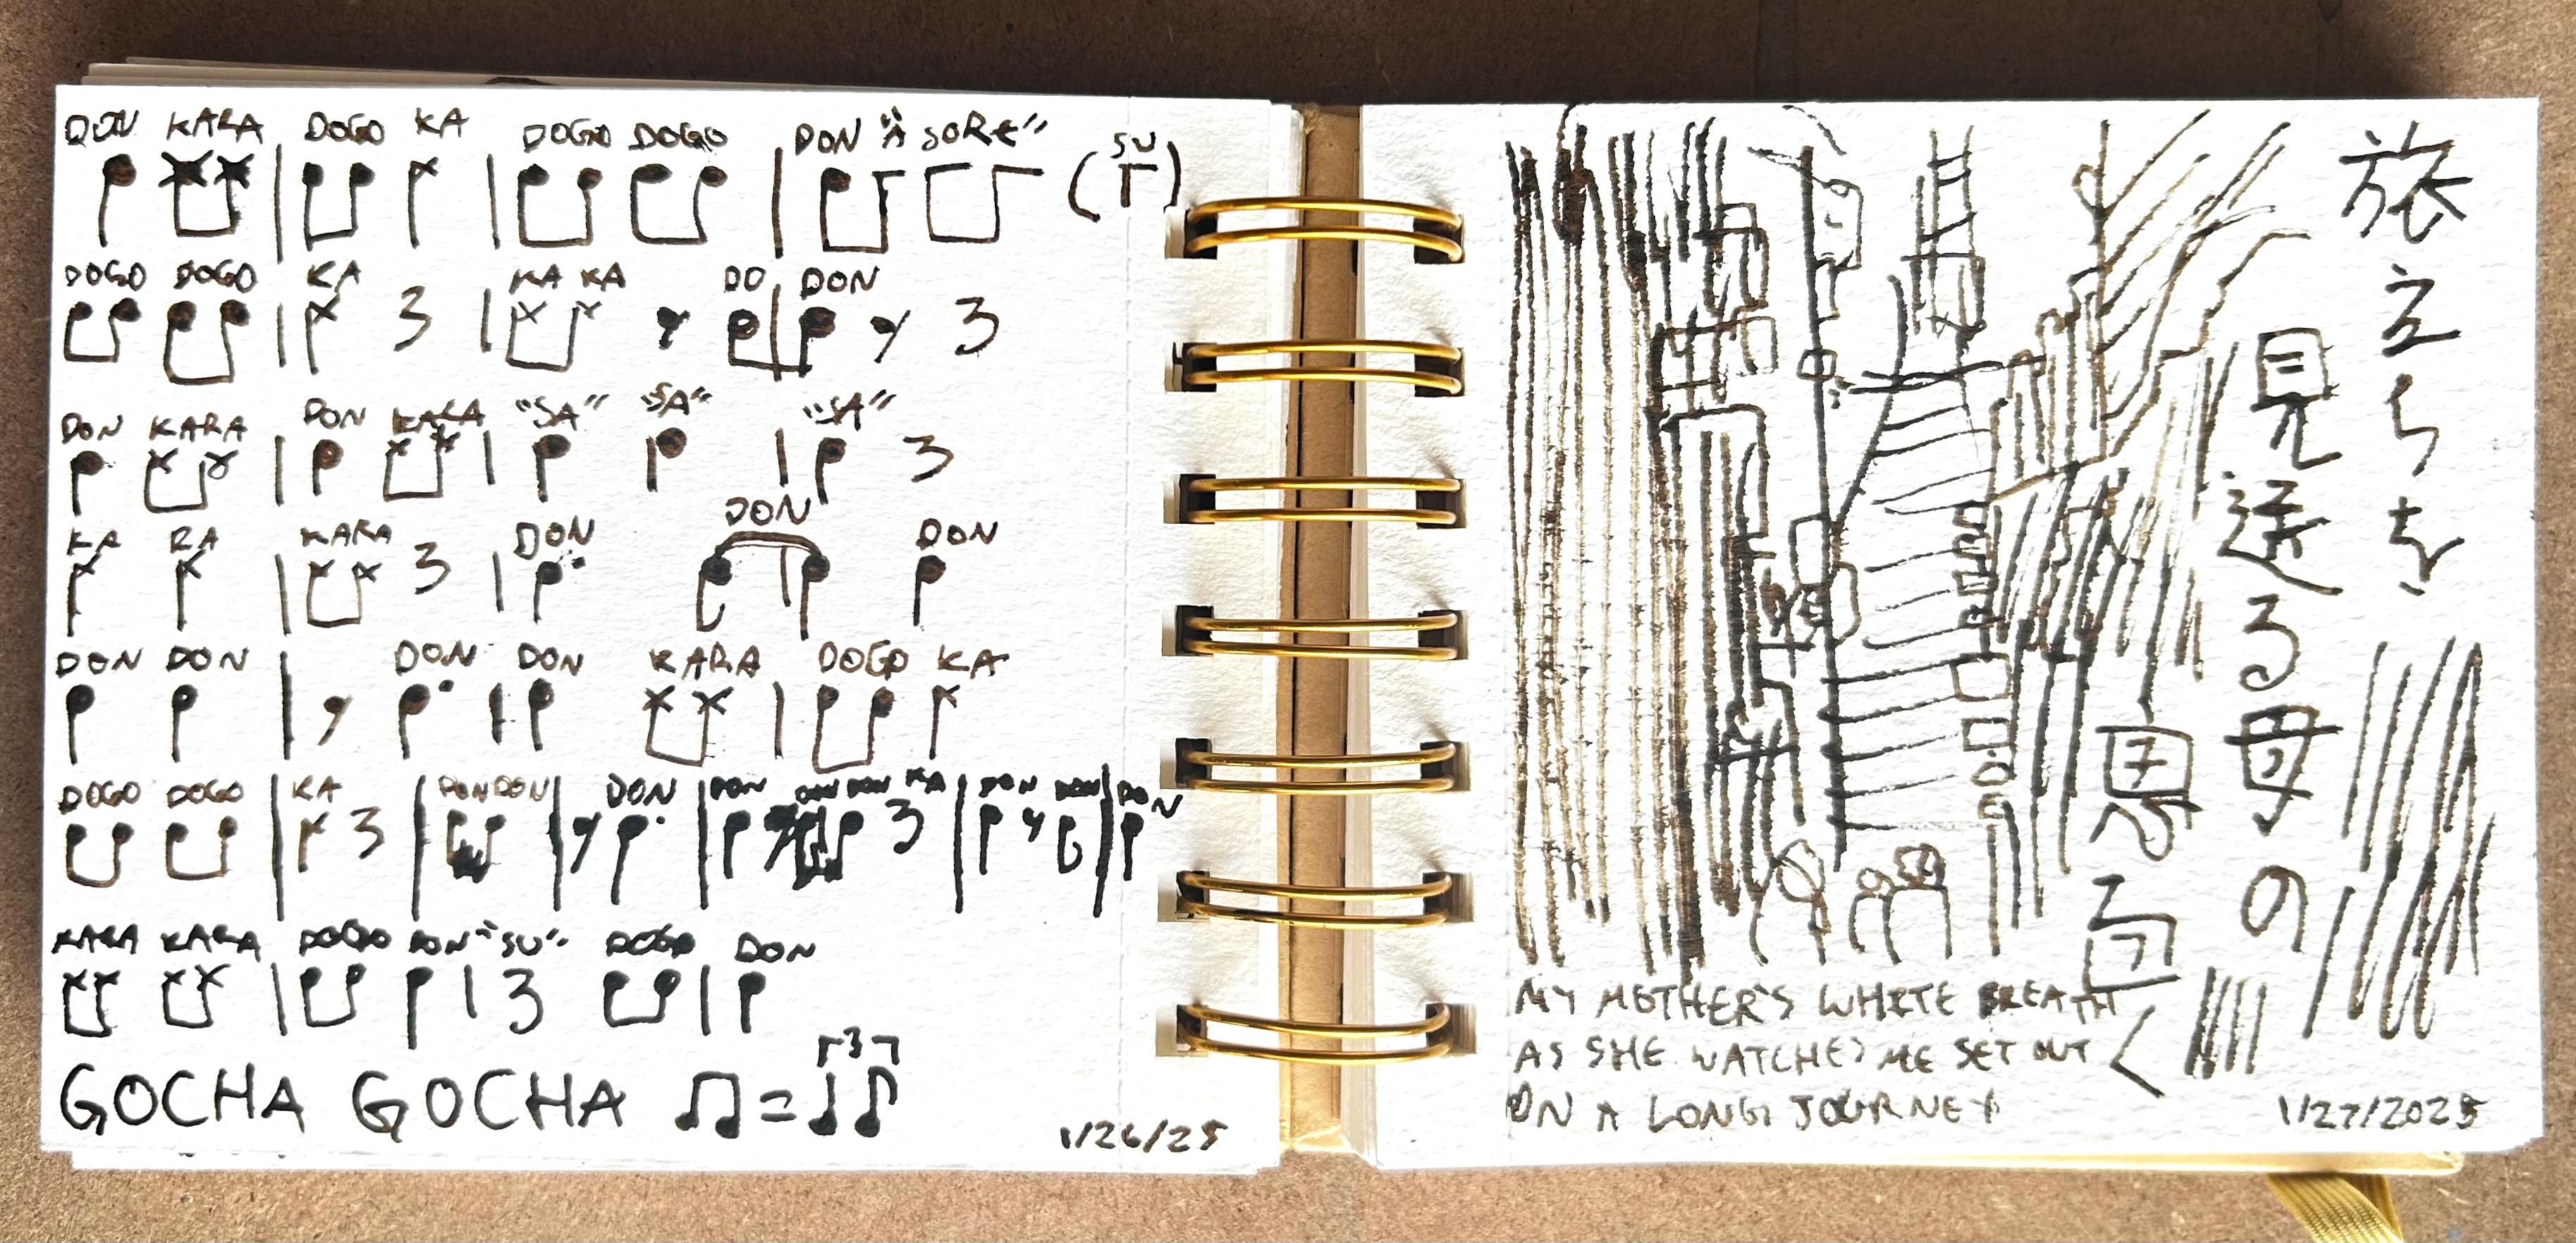 DON KARA DOGO KA DOGO DOGO DON "A SORE" (SU)
DOGO DOGO KA KA KA DO DON
DON KARA DON KARA "SA" "SA" "SA"
KA RA KARA DON DON DON
DON DON DON DON KARA DOGO KA
DOGO DOGO KA DON DON DON DON DON DON KA DON DON DON
KARA KARA DOGO DON "SU" DOGO DON
GOCHA GOCHA ♫ = 3
1/26/25
旅立ちを
見送る母の
息白く
MY MOTHER'S WHITE BREATH
AS SHE WATCHES ME SET OUT
ON A LONG JOURNEY
1/27/2025